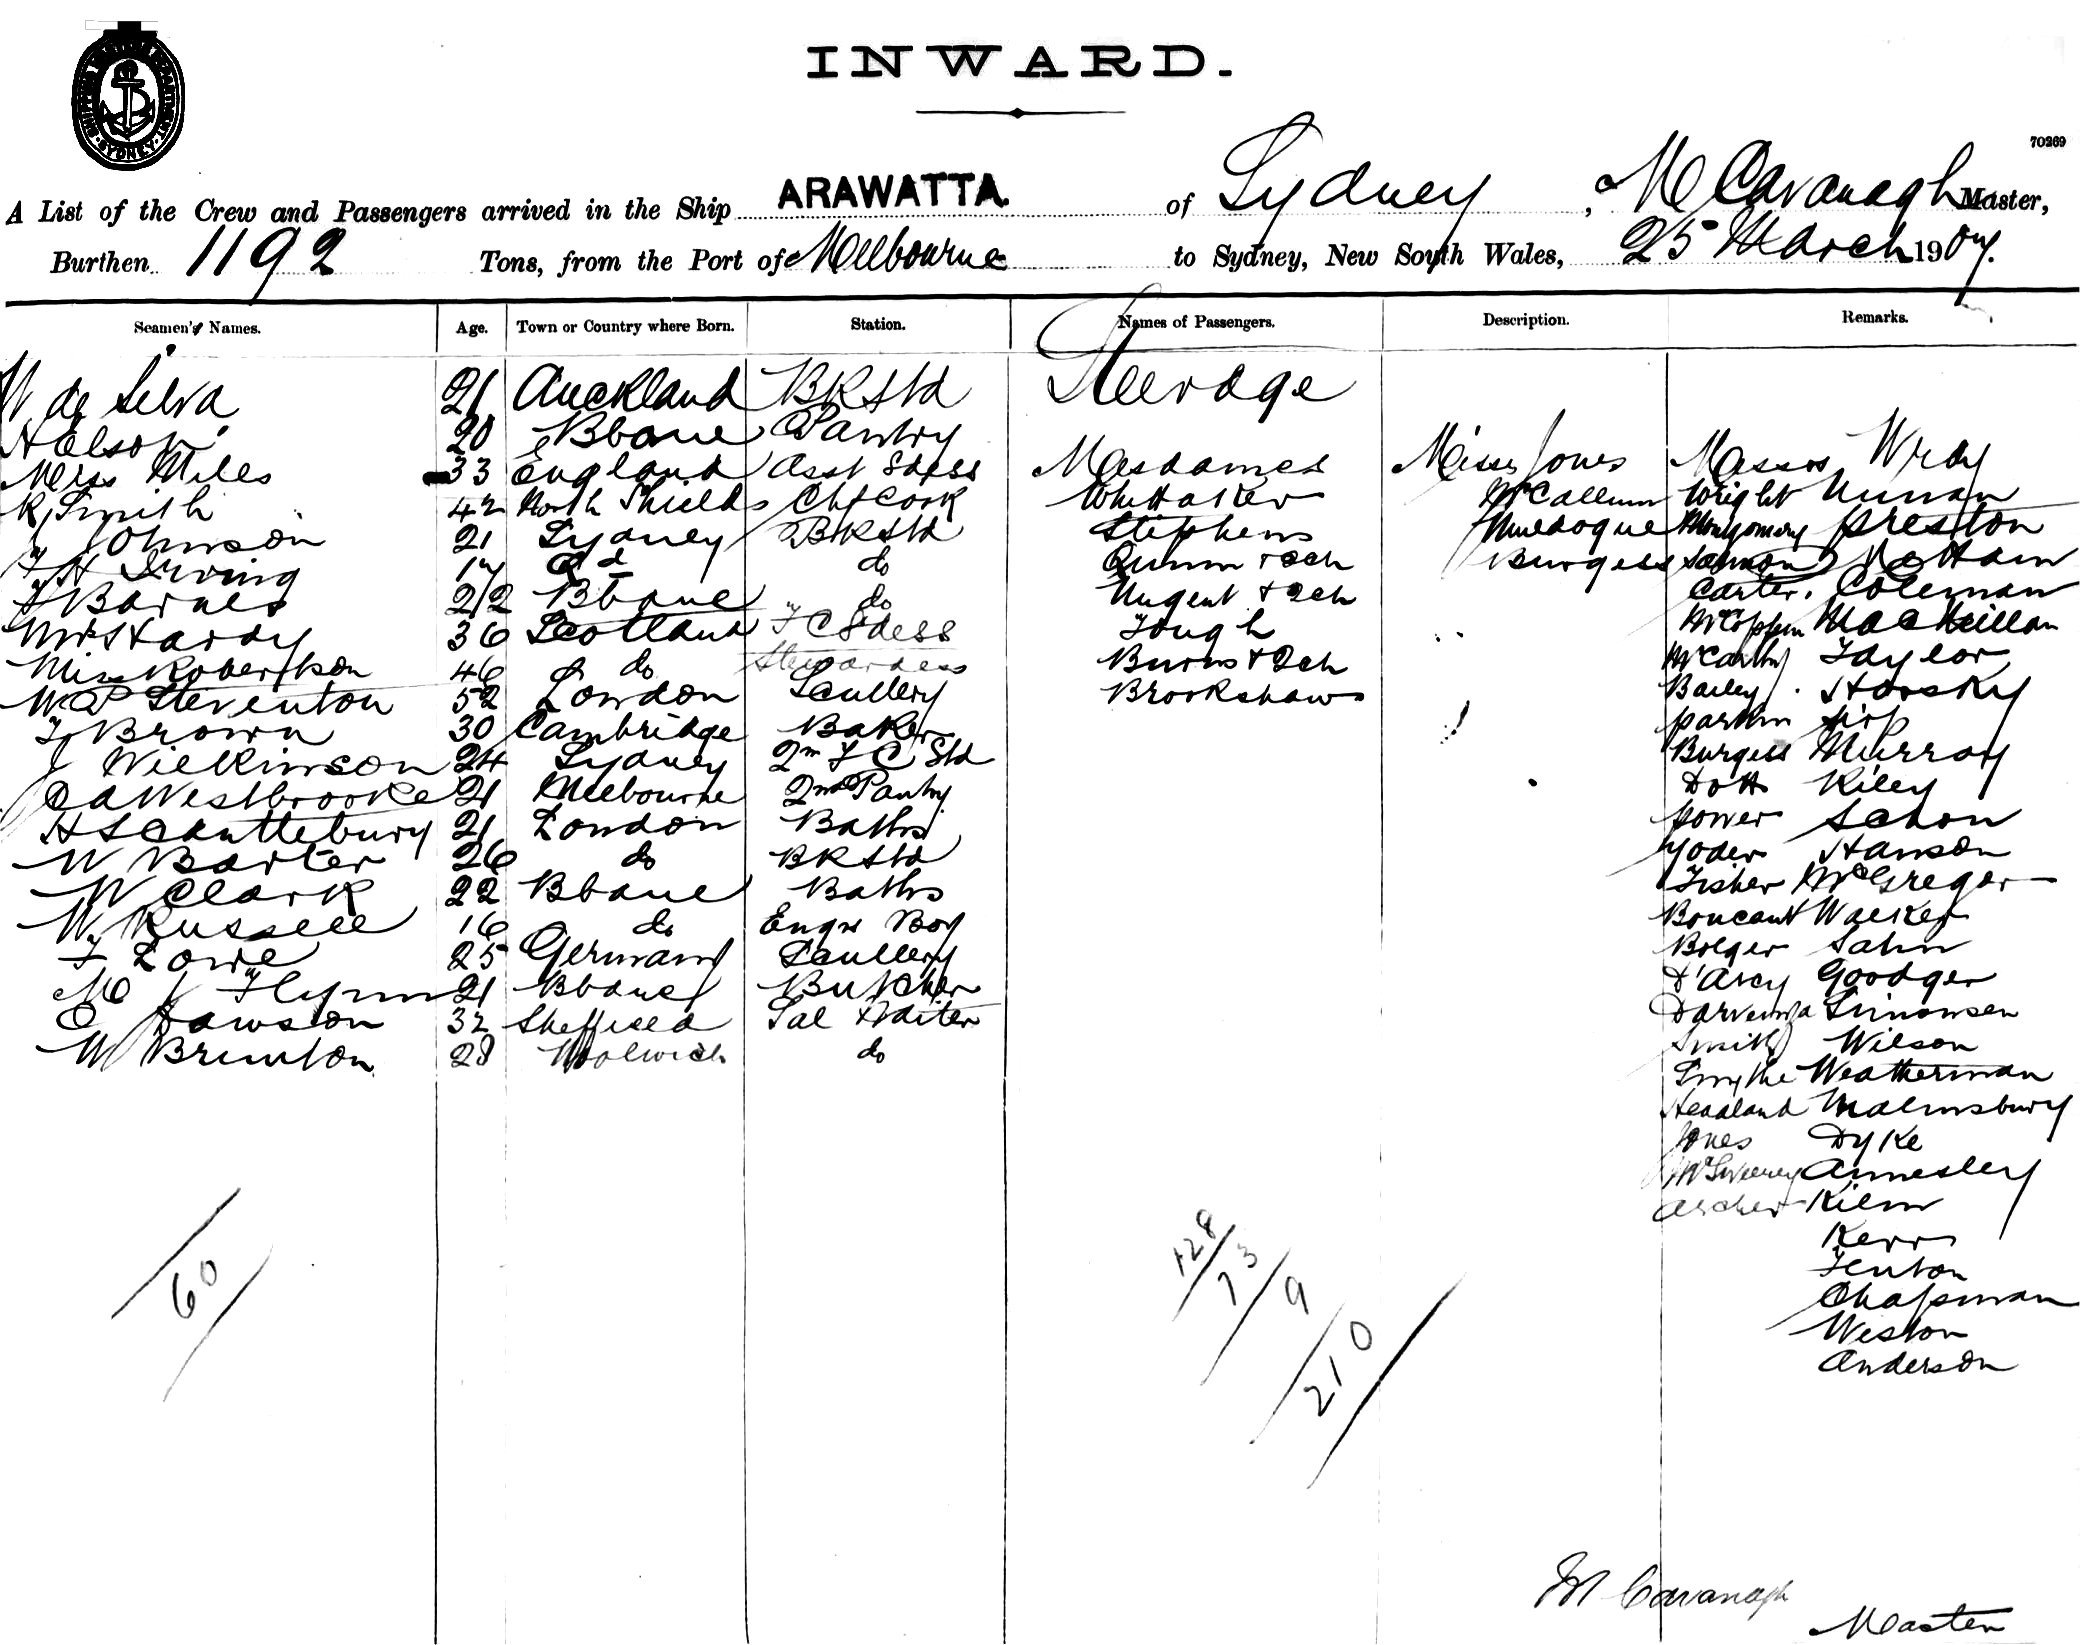 SHIPPING MASTER'S DEPARTMENT
SYDNEY
INWARD.
70269
A List of the Crew and Passengers arrived in the Ship ARAWATTA. of Sydney, M Cavanagh Master,
Burthen 1192 Tons, from the Port of Melbourne to Sydney, New South Wales, 25 March 1907.
Seamen's Names. Age. Town or Country where Born. Station. Names of Passengers. Description. Remarks.
Steerage
W de Silva 21 Auckland BR Std
H Elson 20 Bbane Pantry
Miss Miles 33 England Asst Sdess Mesdames Misses Jones Messrs Wray
R Smith 42 North Shields Chf Cook Whittaker McCallum Wright Nunan
J Johnson 21 Sydney BR Std Stephens Muldogue Montgomery Preston
F H Irving 17 do do Quinn + 2ch Burgess Salmon
J Barnes 22 Bbane do Nugent + 2ch Carter. Coleman
Mrs Hardy 36 Scotland F C Sdess Tough MacMillan
Miss Robertson 46 do Stewardess Burns + 2ch McCarthy Taylor
W P Steventon 52 London Scullery Brookshaw Bailey Horsky
F Brown 30 Cambridge Baker Parkin
J Wilkinson 24 Sydney 2nd F C Std Burgess Murray
C A Westbrooke 21 Melbourne 2nd Pantry Dott Kiley
H S Canttebury 21 London Baths Power Schon
W Barter 26 do BR Std Yoder Hanson
W Clark 22 Bbane Baths Fisher McGregor
W Russell 16 do Engrs Boy Boucaut Walker
F Lowe 25 Germany Scullery Bolger Sahn
M J Flynn 21 Bbane Butcher D'Arcy Goodger
C Dawson 32 Sheffield Sal Waiter Simonsen
W Brunton 28 Woolwich do Smith Wilson
Smythe Weatherman
Headland Malmsbury
Jones Dyke
McSweeney Annesley
Archer Kilm
Kerr
Fenton
Chapman
Weston
Anderson
60
128
73
9
210
M Cavanagh
Master